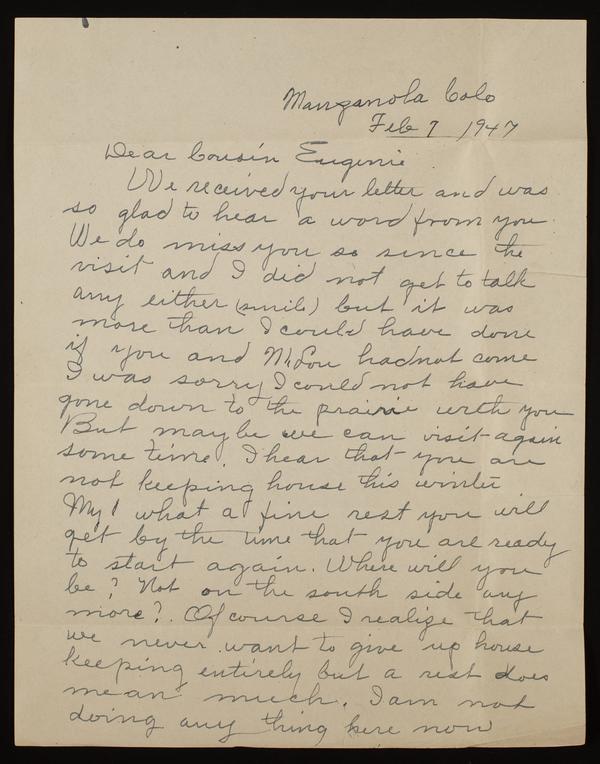 Manzanola Colo
Feb 7 1947
Dear Cousin Eugenie
We received your letter and was
so glad to hear a word from you.
We do miss you so since the
visit and I did not get to talk
any either (smile) but it was
more than I could have done
if you and had not come
I was sorry I could not have
gone down to the prairie with you
But maybe we can visit again
some time. I hear that you are
not keeping house this winter
My! what a fine rest you will
get by the time that you are ready
to start again. Where will you
be? Not on the south side any
more?. Of course I realize that
we never want to give up house
keeping entirely but a rest does
mean much. I am not
doing any thing here now